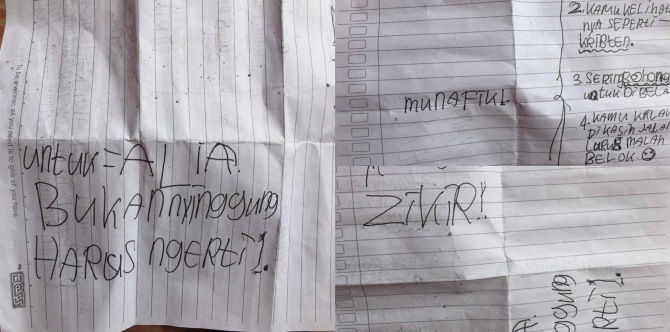 To be a winner, all you need to give all you have
untuk = ALIA.
BUKAN nyinggung
HARUS NGERTI"!.
munafik!
2. KAMU KELihat
nya SEPERTi
KRIBTEN.
3. SERING BOhong
untuk DI BELA
4. KAMU KALAU
DIKASIH JALAN
LURUS MALAH
BELOK.
ZIKIR!!